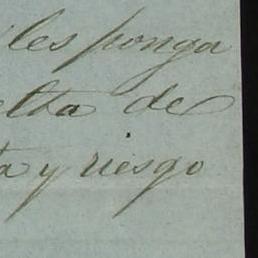 les ponga
elta de
ta y riesgo